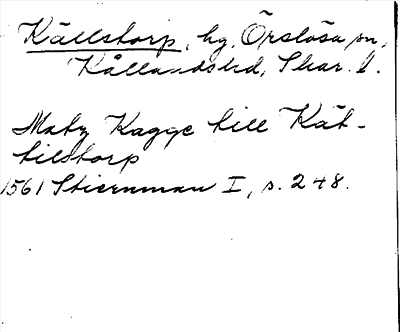 Källstorp, hg, Örslösa sn,
Kållands hd, Skar. l.
Matz Kagge till Kät-
tilstorp
1561 Stiernman I, s. 248.